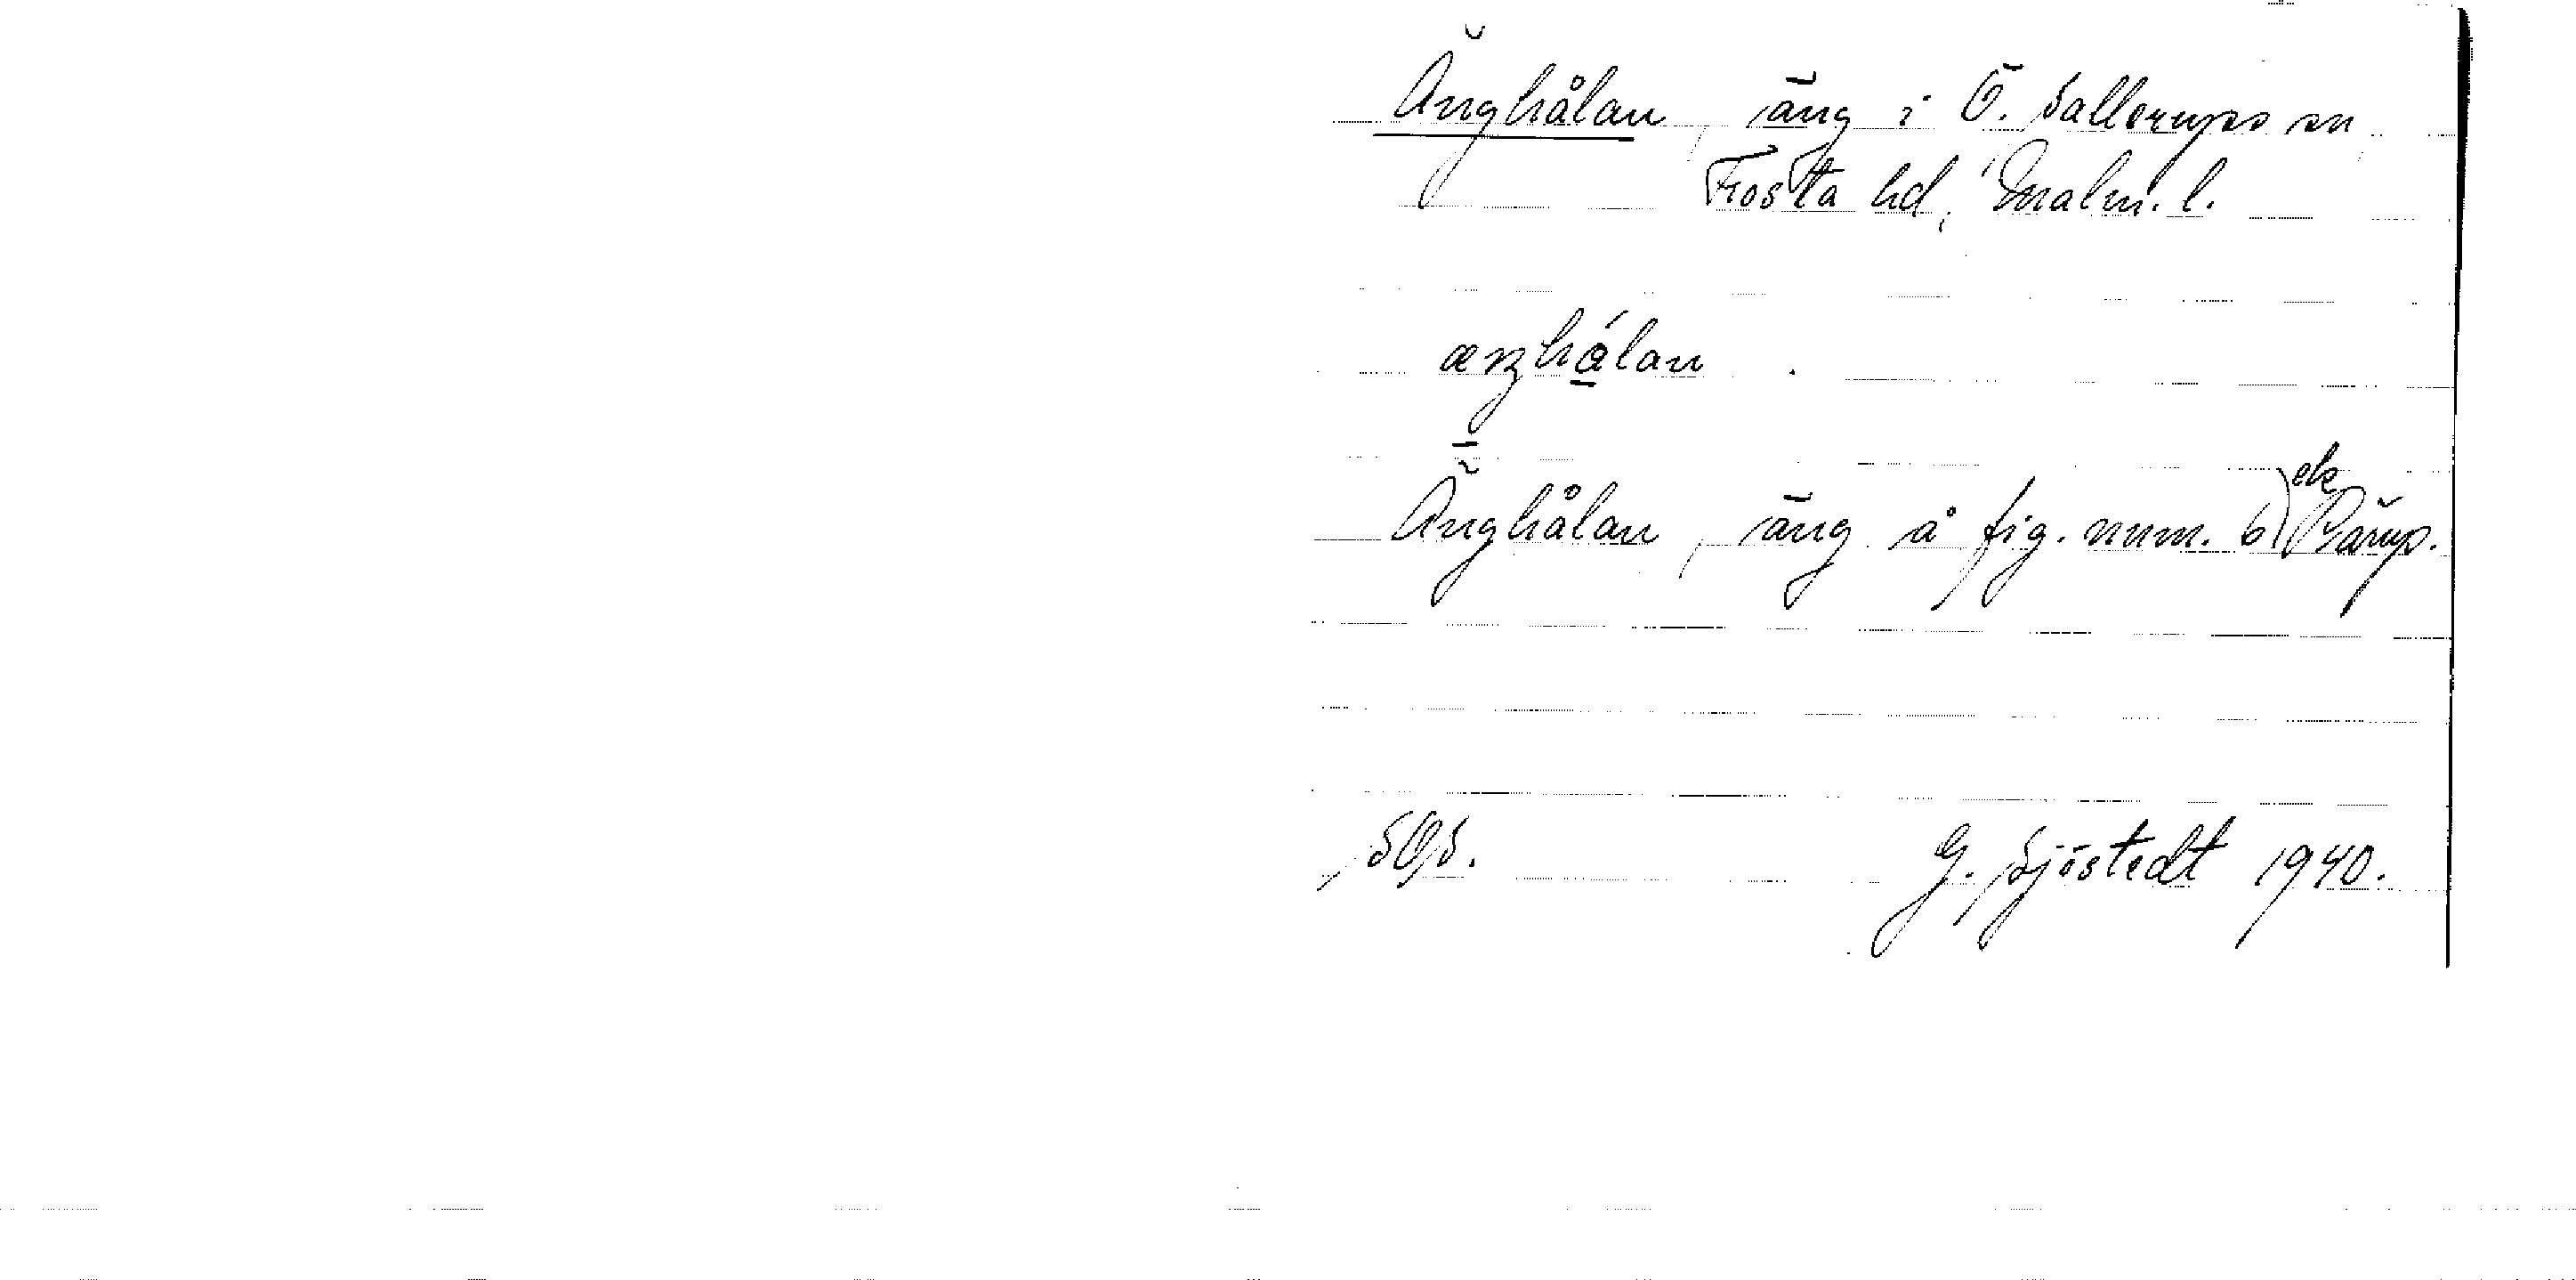 Änghålan, äng i Ö. Sallerups sn,
Frosta hd, Malm. l.
æŋhålan.
Änghålan, äng å fig. num. 6) ek
Pärup.
SOS.
G. Sjöstedt 1940.